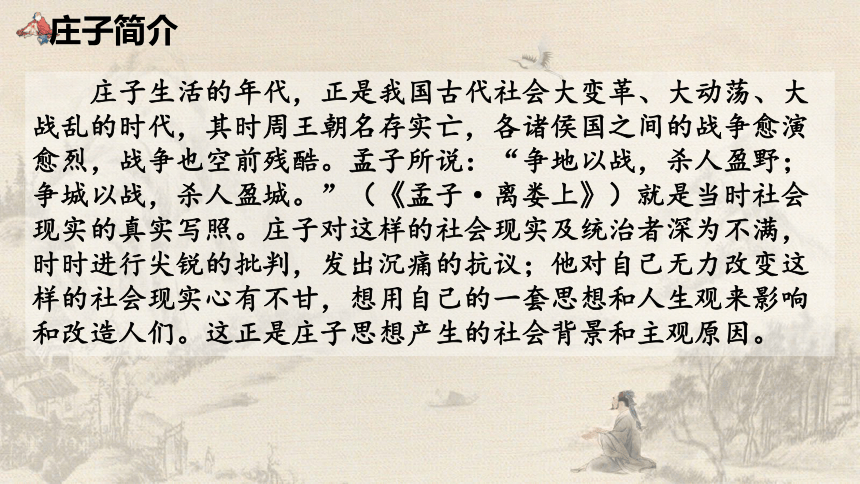 庄子简介
庄子生活的年代，正是我国古代社会大变革、大动荡、大
战乱的时代，其时周王朝名存实亡，各诸侯国之间的战争愈演
愈烈，战争也空前残酷。孟子所说：“争地以战，杀人盈野；
争城以战，杀人盈城。”（《孟子·离娄上》）就是当时社会
现实的真实写照。庄子对这样的社会现实及统治者深为不满，
时时进行尖锐的批判，发出沉痛的抗议；他对自己无力改变这
样的社会现实心有不甘，想用自己的一套思想和人生观来影响
和改造人们。这正是庄子思想产生的社会背景和主观原因。